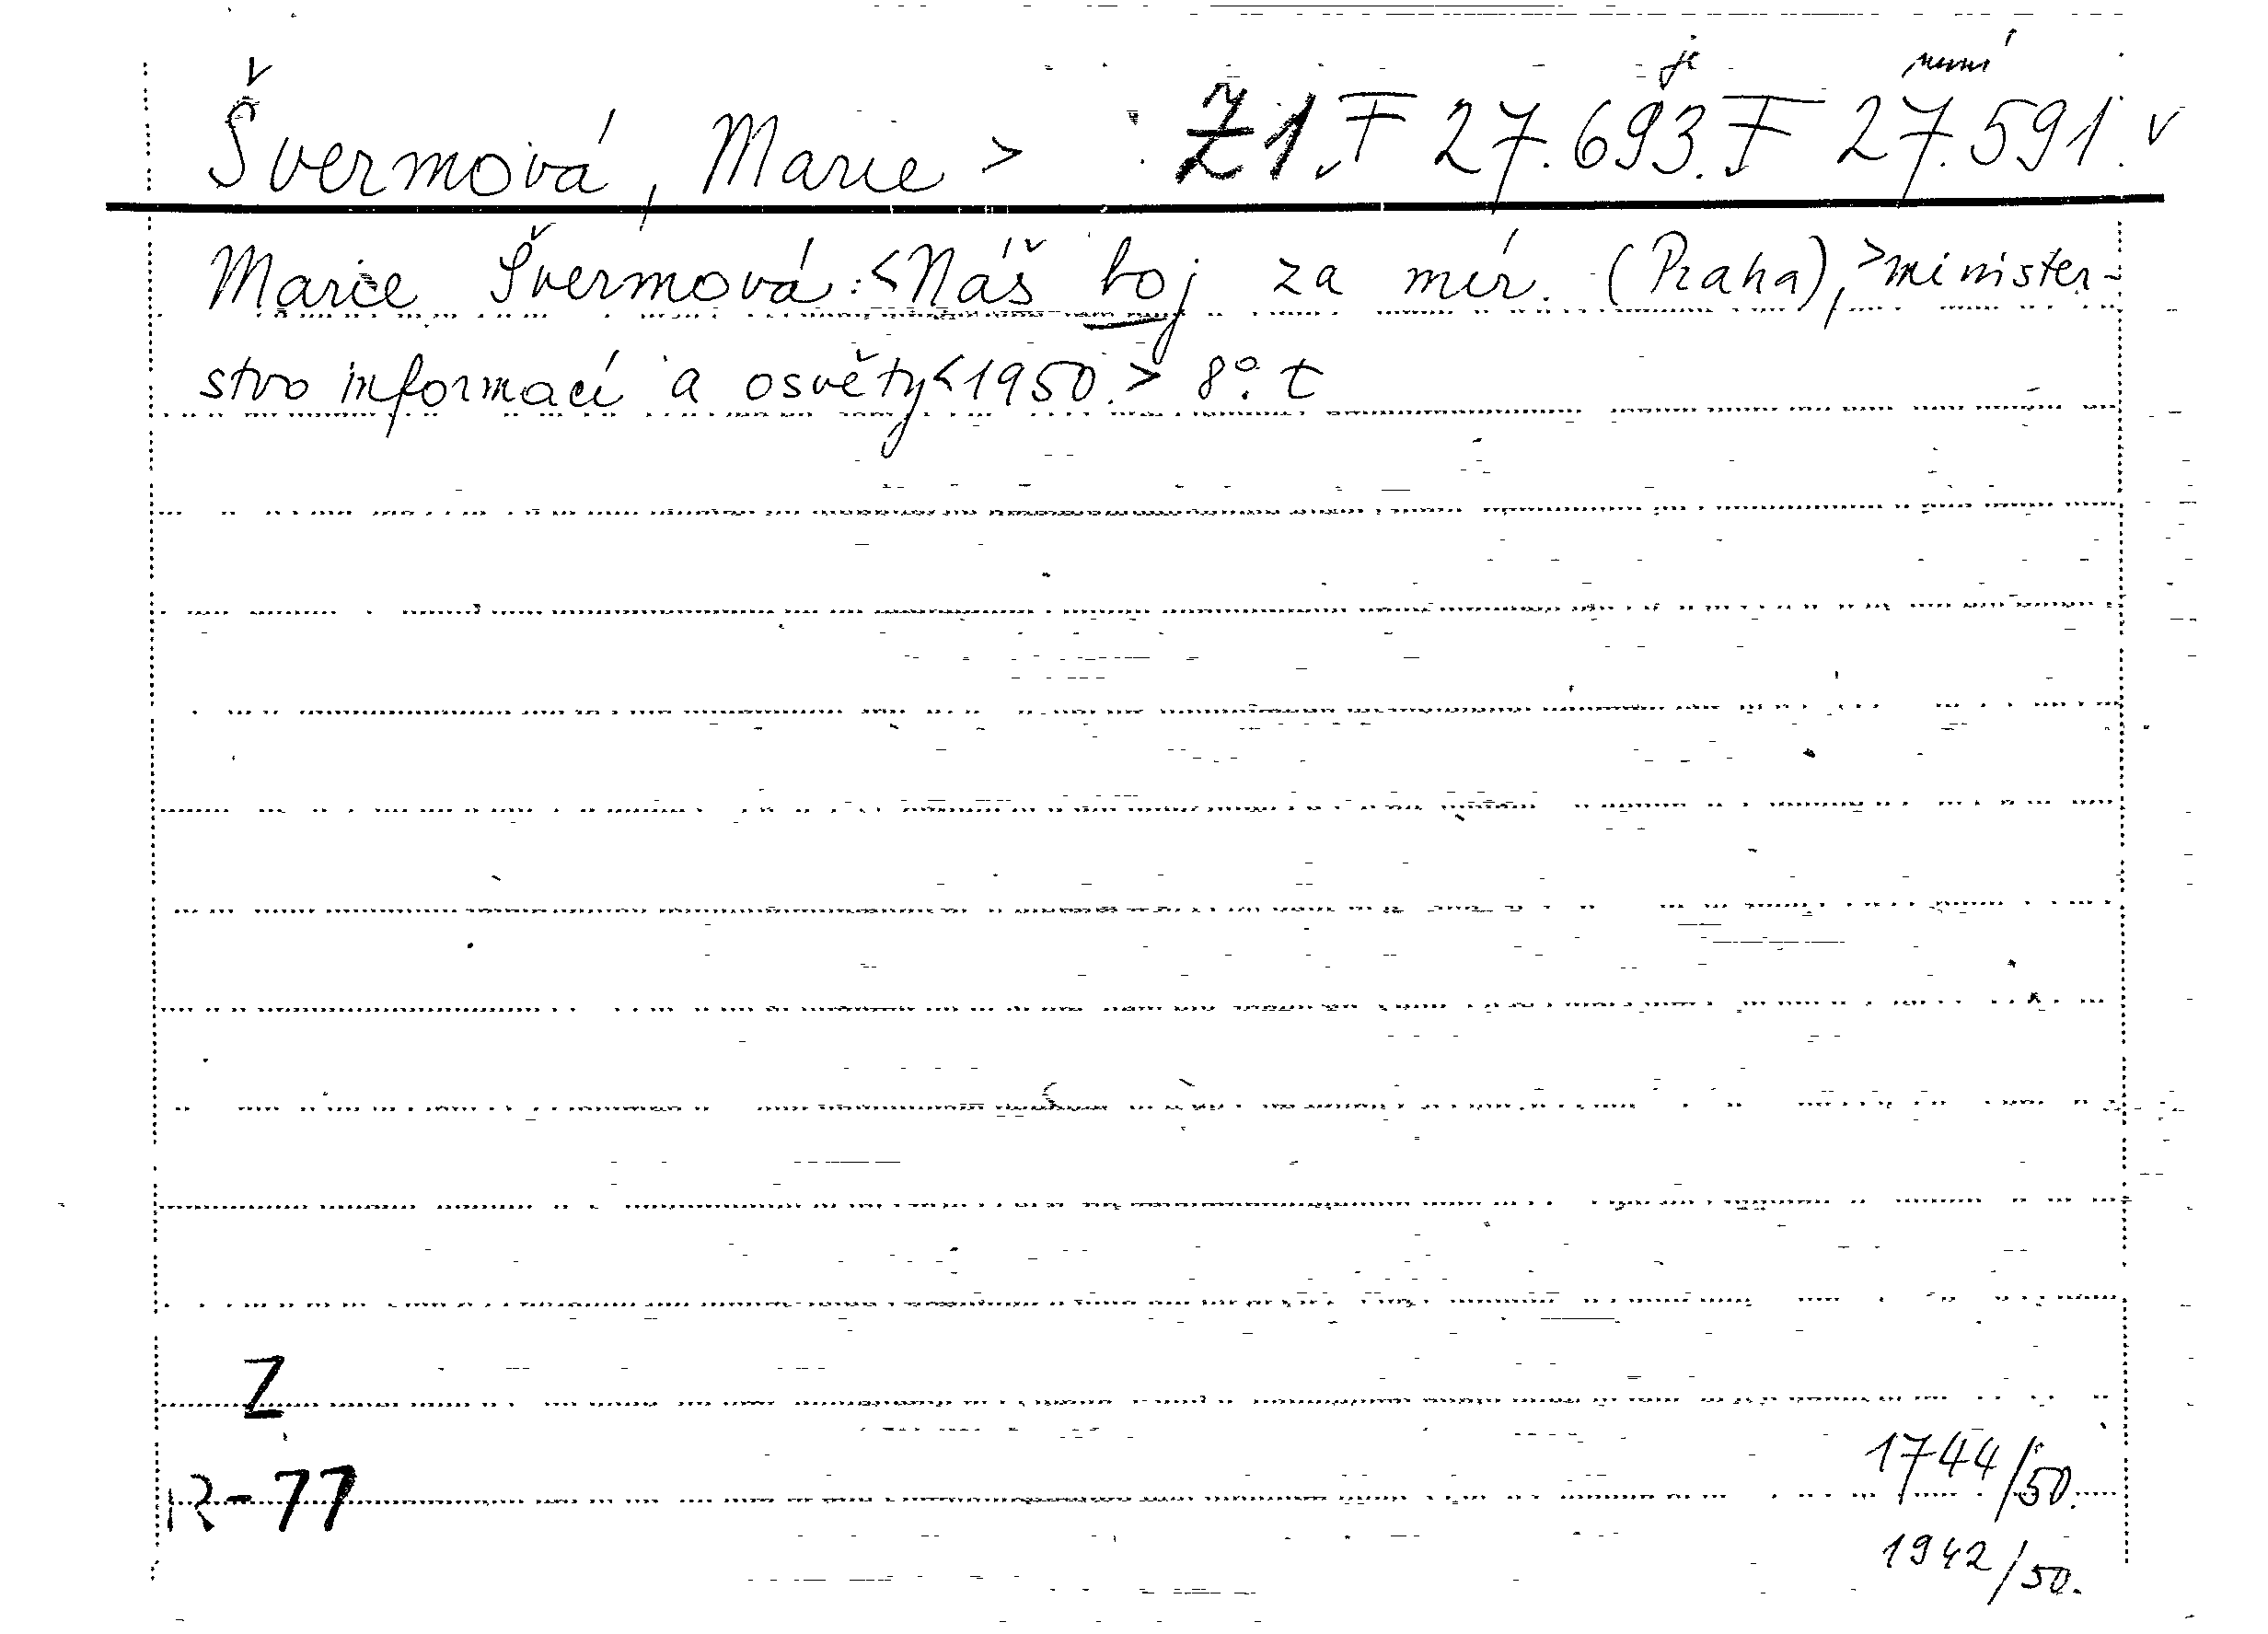 je není
Švermová, Marie > Z1. F 27.693. F 27.591. v
Marie Švermová: <Náš boj za mír. (Praha), >minister-
stvo informací a osvěty<1950.> 8°. t
Z
R-77
1744/50.
1942/50.